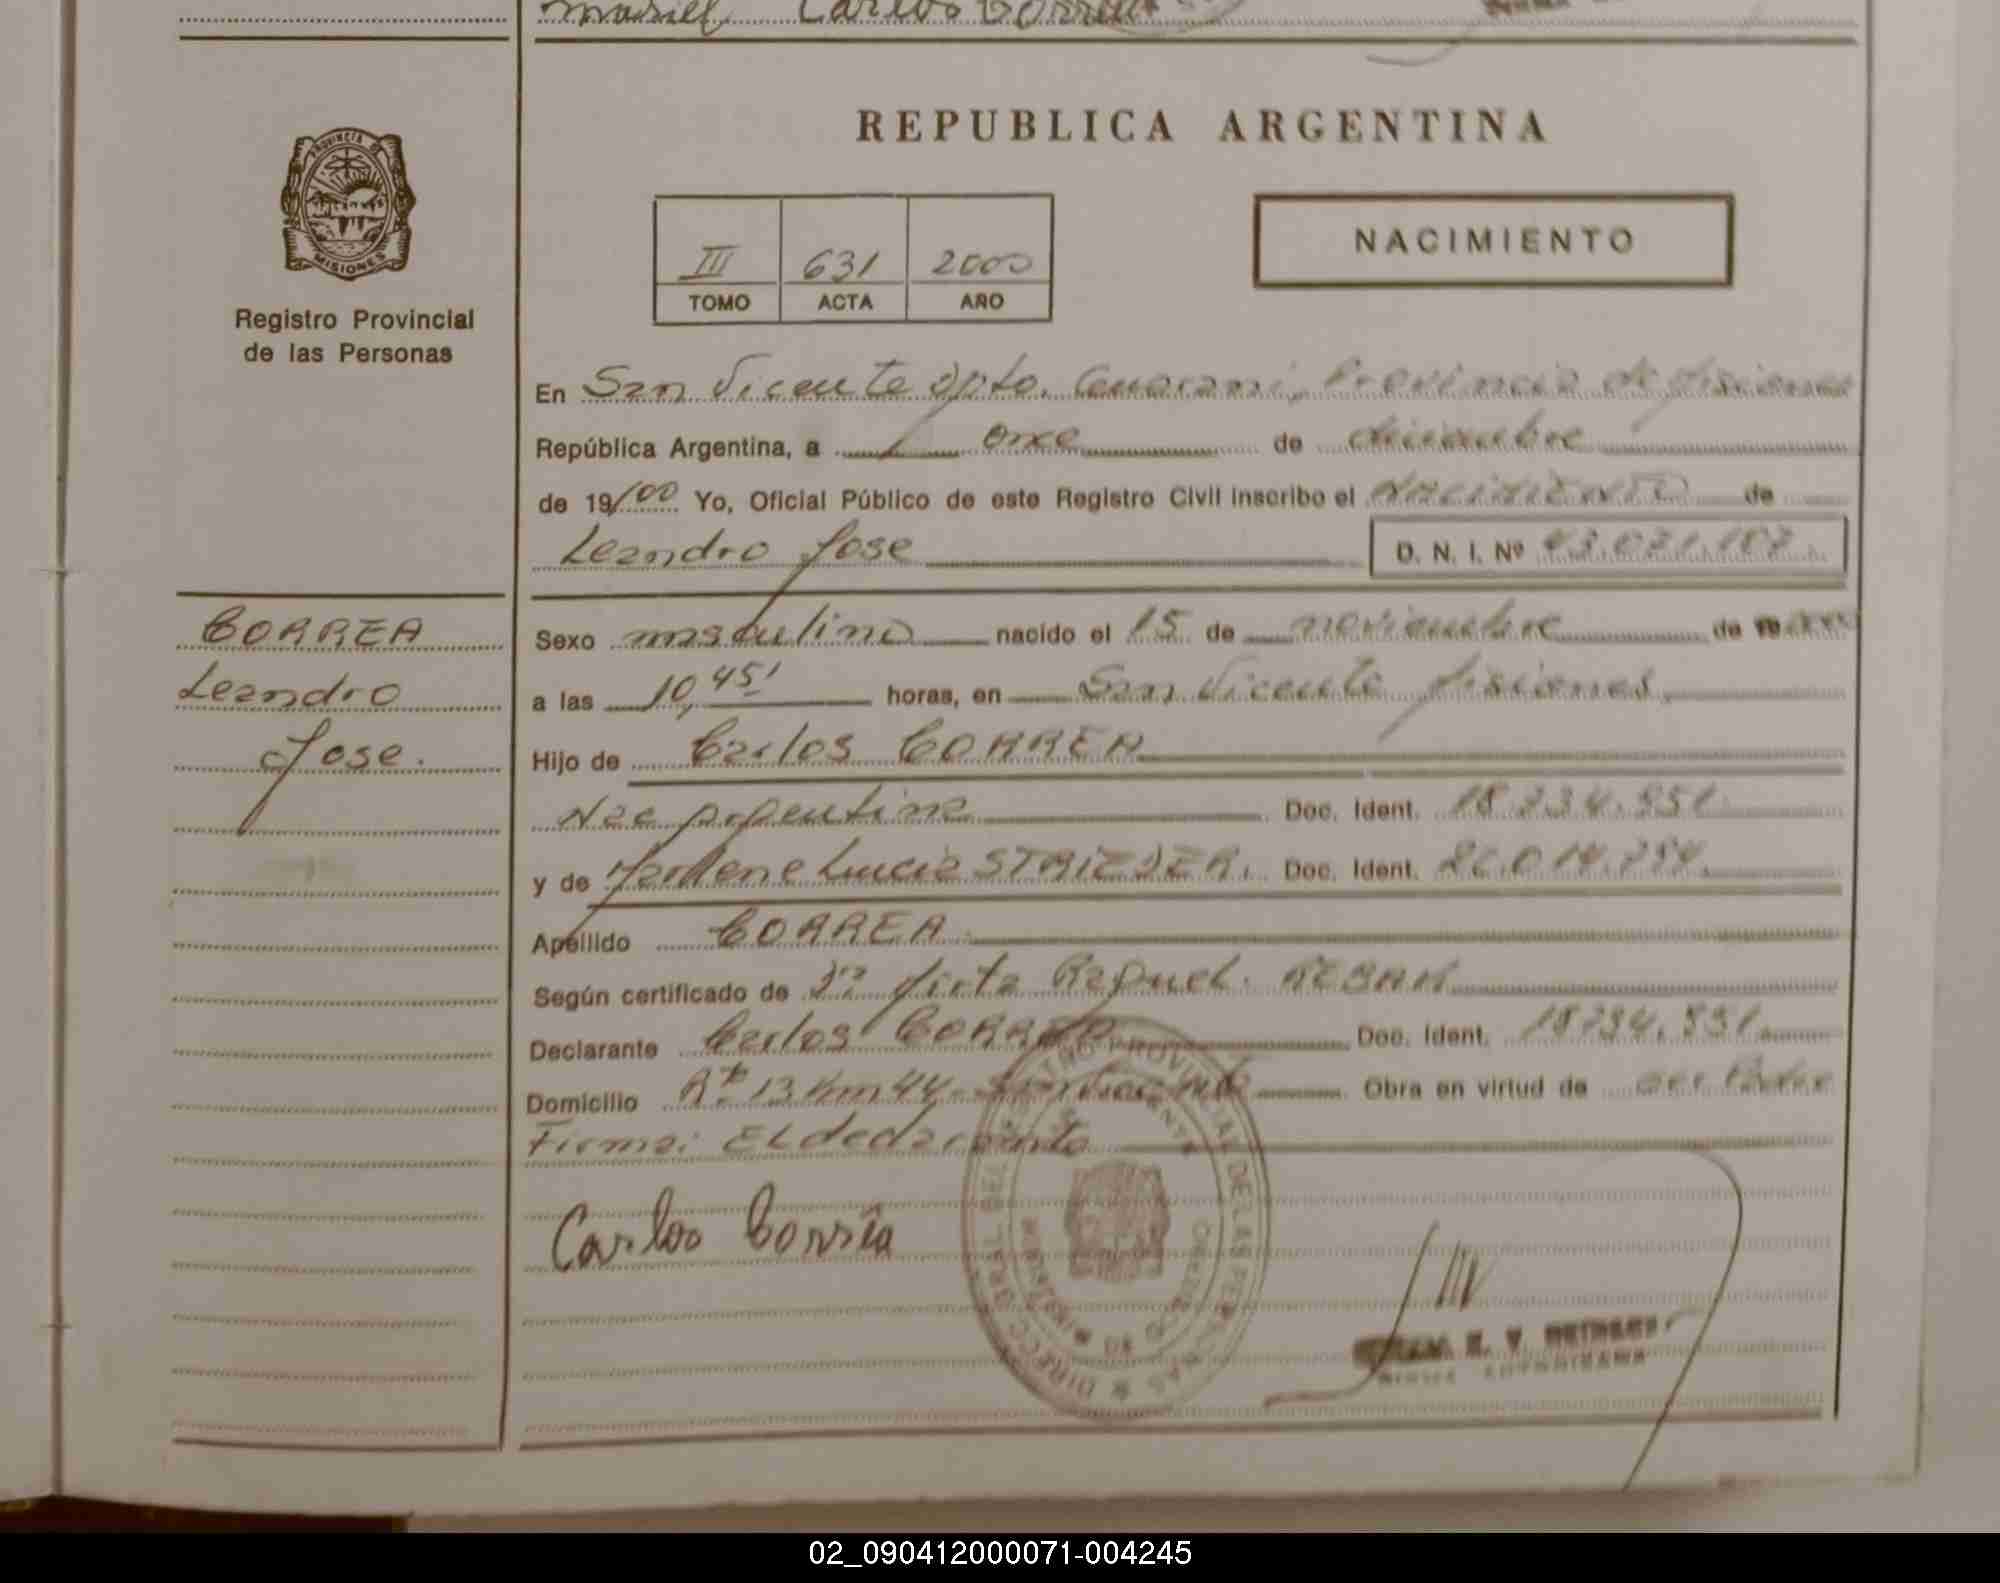 Carlos Correa
PROVINCIA DE
MISIONES
Registro Provincial
de las Personas
REPUBLICA ARGENTINA
III 631 2000
TOMO ACTA AÑO
NACIMIENTO
En San Vicente Dpto. Guarani, Provincia de Misiones
República Argentina, a once de diciembre
de 19/00 Yo, Oficial Público de este Registro Civil inscribo el nacimiento de
Leandro Jose D. N. I. Nº 43.021.
CORREA
Leandro
Jose.
Sexo masculino nacido el 15 de noviembre de
a las 10,45' horas, en San Vicente Misiones,
Hijo de Carlos CORREA
Nac Argentina Doc. Ident. 18.234.951
y de Marlene Lucia STRIEDER. Doc. Ident.
Apellido CORREA
Según certificado de Dra Mirta Raquel
Declarante Carlos CORREA Doc. Ident. 18234.951
Domicilio Rta 13 Km 44 San Vicente Obra en virtud de ser Padre
Firma: El declarante
Carlos Correa
DIRECC. GRAL. DEL REGISTRO PROVINCIAL DE LAS PERSONAS